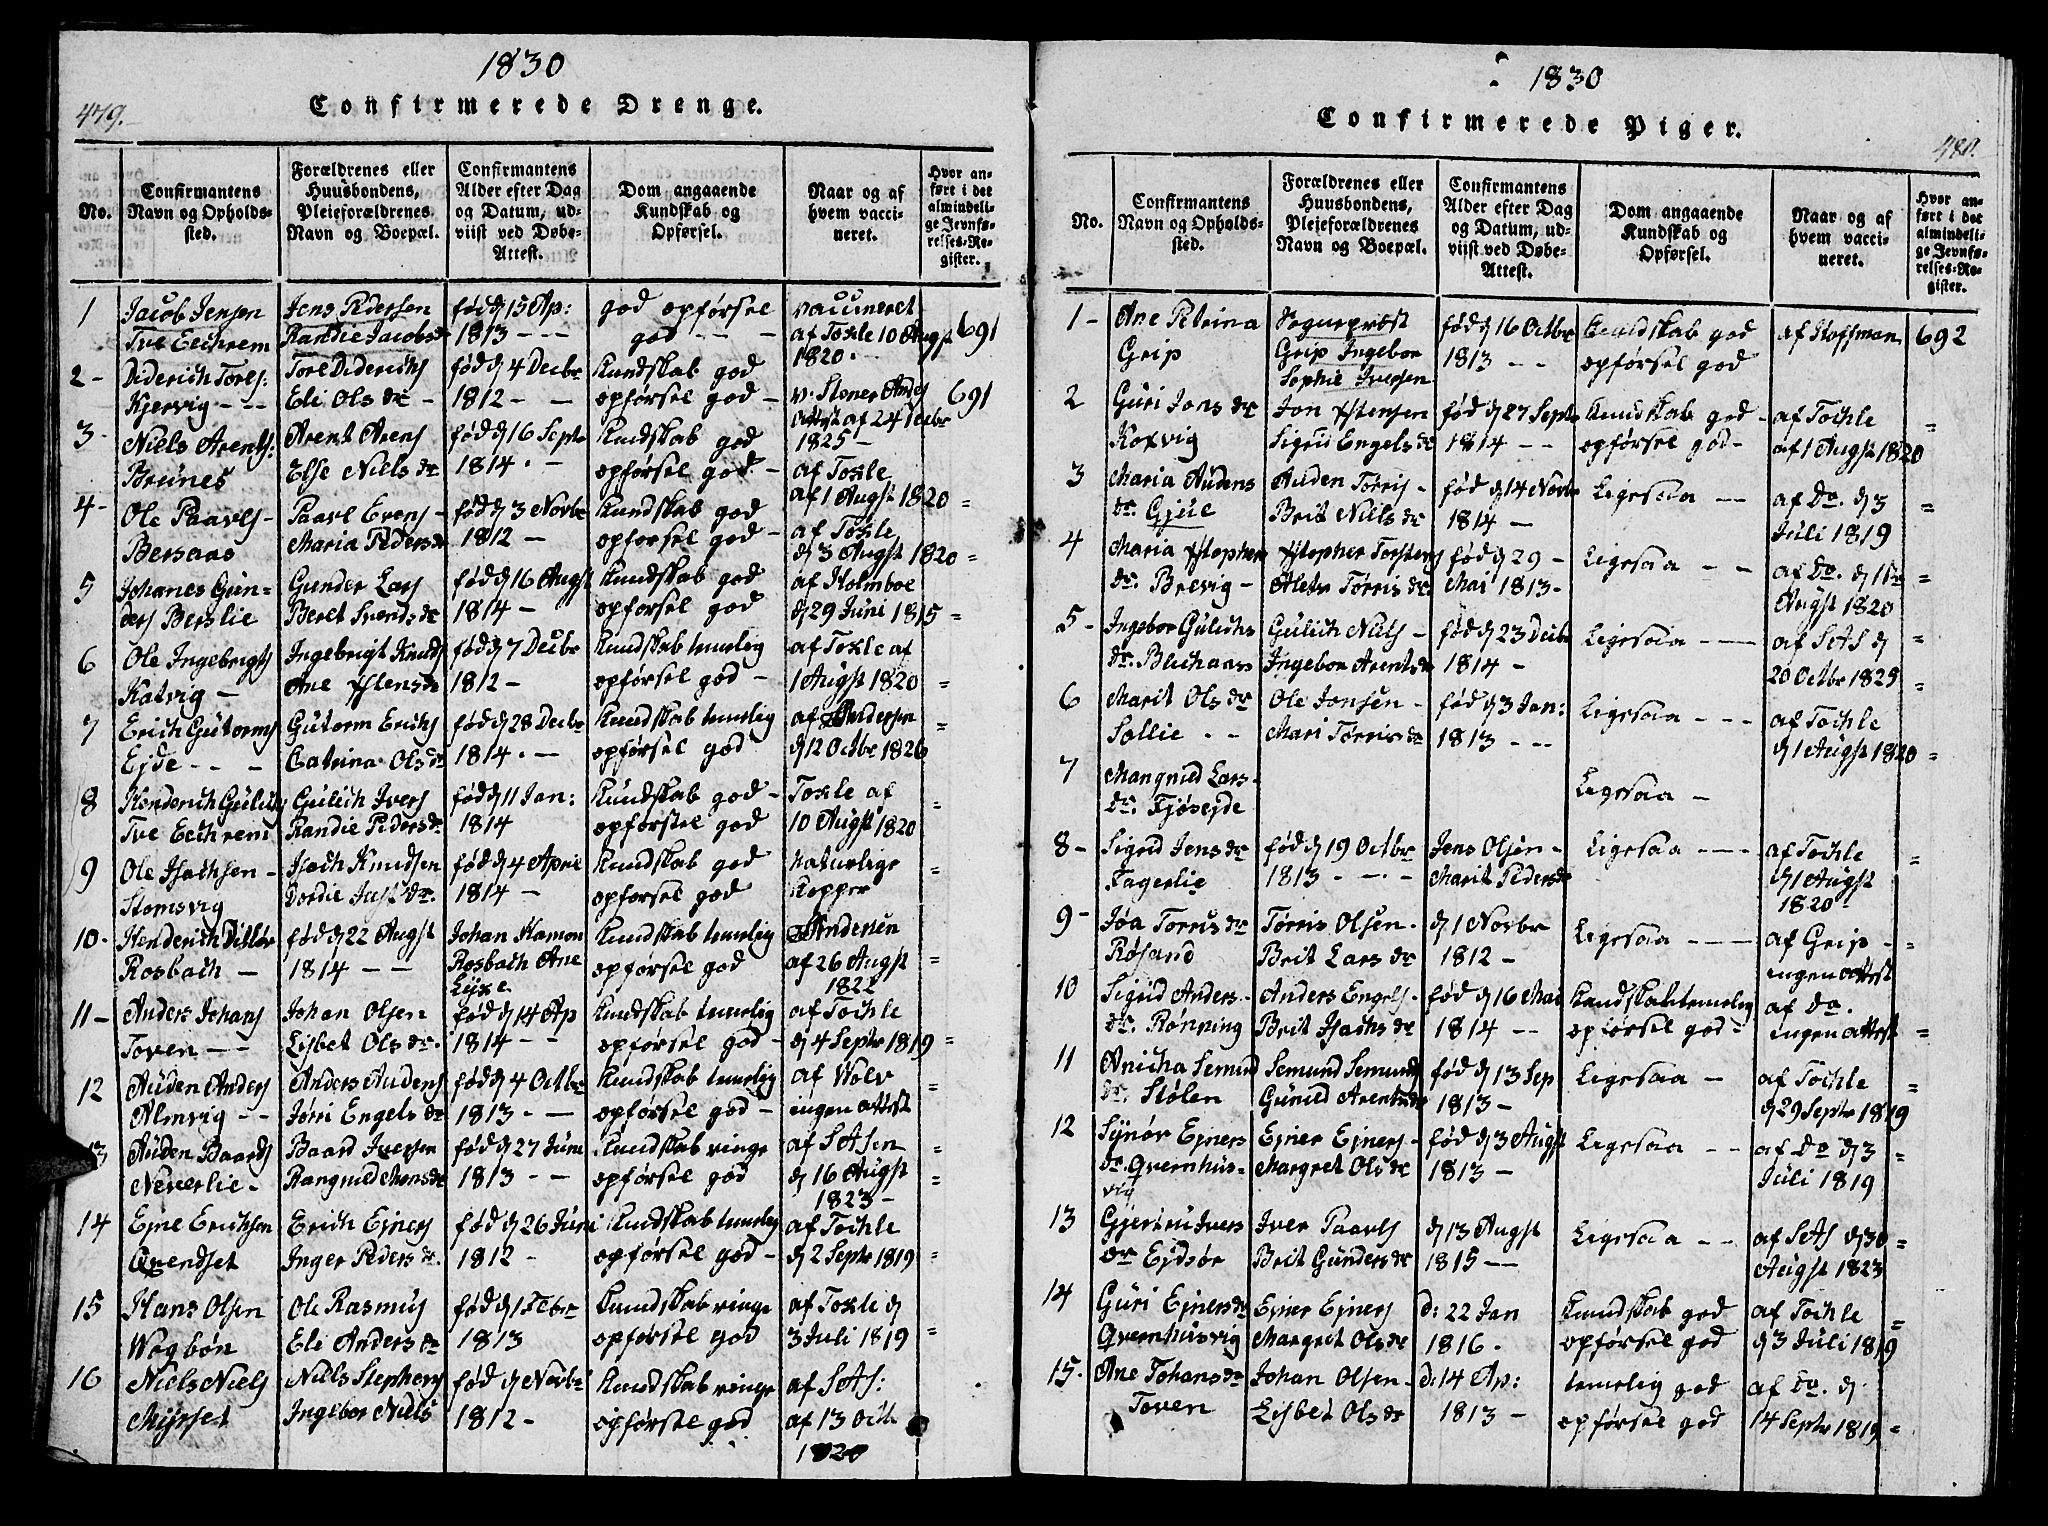 1830
479.
Confirmerede Drenge.
No.
Confirmantens Navn og Opholdssted.
Forældrenes eller Huusbondens, Plejeforældrenes Navn og Boepæl.
Confirmantens Alder efter Dag og Datum, udviist ved Døbe-Attest.
Dom angaaende Kundskab og Opførsel.
Naar og af hvem vaccineret.
Hvor anført i det almindelige Jevnførelses-Register.
1 Jacob Jensen Jens Pedersen fød d 15 Ap: god opførsel vaccineret
Tve Eechrem Randie Jacobs dr 1813 - - - god - - af Toxle 10 Augst 691
1820.
2 - Diderich Torls: Torl Diderichs fød d 4 Decbr Kundskab god v. Stoner Andes
Kjervig - - - Eli Ols dr - 1812 - - opførsel god - Attest af 24 Decbr 691
3 - Niels Arents: Arent Arens fød d 16 Septr Kundskab god 1825 -
Brünes Else Niels dr 1814 . - opførsel god - af Toxle
4 - Ole Paavls - Paavl Evens - fød d 3 Novbr Kundskab god af 1 Augst 1820 =
Bersaas Maria Peders dr 1812 - opførsel god - af Toxle
d 3 Augst 1820 =
5 Johanes Gün= Gunder Lars fød d 16 Augst Kundskab god af Holmboe
ders Berslie Beret Svends dr 1814 - opførsel god d 29 Juni 1815 =
6 Ole Ingebrigts Ingebrigt Knuds fød d 7 Decbr Kundskab temelig af Toxle af
Katvig - Ane Ystens dr 1812 - opførsel god - 1 Augst 1820 =
7 Erich Gütorms Gütorm Erichs fød d 28 Decbr Kundskab temelig af Andersen =
Ejde - - - Catrina Ols dr 1814 . - opførsel god d 12 Octbr 1826
8 Henderich Gülichs Gülich Ivers fød d 11 Jan: Kundskab god - Toxle af =
Tve Eechrem Randie Peders dr 1814 opførsel god 10 Augst 1820
9 Ole Isachsen - Isach Knudsen fød d 4 April Kundskab god Naturlige =
Stomsvig Dordie Just dr. 1814 - opførsel god Kopper
10 - Henderich Ditlør fød d 22 Augst Johan Ramon Kundskab temelig Andersen
Rosbach - 1814 - - Rosbach Ane opførsel god af 26 Augst =
Lixe. 1822
11 - Anders Johans Johan Olsen fød d 14 Ap Kundskab temelig af Tochle
Toven - - Lisbet Ols dr. 1814 - - opførsel god - d 4 Septr 1819 =
12 Auden Anders Anders Audens fød d 4 Octbr Kundskab temelig af Wolv =
Almvig - - Jørri Engels dr 1813 - - opførsel god - ingen attest
13 Auden Baards Baard Iversen fød d 27 Juni Kundskab ringe af SAsen =
Neverlie - Rangnild Mons dr 1813 - - opførsel god d 16 Augst =
1823 -
14 Ejne Erichsen Erich Ejners fød d 26 Juni Kundskab temelig af Tochle
Qvendset Inger Peders dr. 1812 - opførsel god - d 2 Septr 1819 =
15 Hans Olsen Ole Rasmus fød d 1 Febr Kundskab ringe af Toxle d
Wogbøn Eli Anders dr 1813 opførsel god 3 Juli 1819 =
16 Niels Niels Niels Stephens fød d Novbr Kundskab ringe af SAS:
Myrset Ingebor Niels 1812 - opførsel god af 13 Octb
1820
1830
480.
Confirmerede Piger.
No.
Confirmantens Navn og Opholdssted.
Forældrenes eller Huusbondens, Plejeforældrenes Navn og Boepæl.
Confirmantens Alder efter Dag og Datum, udviist ved Døbe-Attest.
Dom angaaende Kundskab og Opførsel.
Naar og af hvem vaccineret.
Hvor anført i det almindelige Jevnførelses-Register.
1 - Ane Petrina Sogneprest fød d 16 Octbr Kundskab god af Hoffman 692
Grip Grip Ingebor 1813 - - opførsel god
Sophie Iversen
2 Güri Jons dr Jon Ystensen fød d 27 Septr Kundskab god - af Tochle =
Koxvig Sigrü Engels dr 1814 - - opførsel god - af 1 Augst 1820
3 Maria Audens Auden Tørris - fød d 14 Novbr Ligesaa - - af Do. d 3 =
dr. Gjüe Brit Niels dr 1814 - Juli 1819
4 Maria Ystophers Ystopher Torstens fød d 29 - Ligesaa - - af Do. d 1te =
dr. Brevig - Aleth Tørris dr. Mai 1813 - Augst 1820
5 - Ingebor Gülichs Gülich Niels - fød d 23 Decbr Ligesaa - - af SAS d =
dr. Blichaas Ingebor Arents dr 1814 - 20 Octbr 1825 =
6 Marit Ols dr Ole Jonsen - fød d 3 Jan: Ligesaa - - - af Tochle
Sollie . - Mari Tørris dr 1813 - - - d 1 Augst 1820 =
7 Mangnild Lars - Ligesaa -
dr. Fjøsejde
8 - Sigrid Jens dr fød d 19 Octbr Jens Olsen - Ligesaa - - - af Tochle =
Fagerlie 1813 - - . - Marit Peders dr d 1 Augst
1820 -
9 - Jøa Torris dr Tørris Olsen - d 1 Novbr Ligesaa - - - af Grip - =
Røsand Brit Lars dr 1812 - ingen attest
10 Sigrid Anders - Anders Engels - fød d 16 Mai Kundskab temelig af do.
dr. Rønning Brit Isachs dr 1814 - - opførsel god - ingen attest =
11 Anicha Semund Semund Semunds fød d 13 Sep Ligesaa - af Tochle =
dr. Stølen Günild Arents dr 1813 - d 29 Septr 1819
12 Synør Ejners Ejner Ejners - fød d 3 Augst Ligesaa - - af Do d 3 =
dr. Qvernhus- Margret Ols dr 1813 - Juli 1819
vig
13 Gjertrü Ivers Iver Paavls d 13 Augst Ligesaa - - af SAS d 30 =
dr Ejdsør Brit Günders dr 1815 - - Augst 1823
14 Güri Ejners dr Ejner Ejners d: 22 Jan Kundskab god af Tochle =
Qvernhusvig Margret Ols dr 1816 . opførsel god d 3 Juli 1819
15 - Ane Johans dr Johan Olsen - d: 14 Ap: temelig god af do. d
Toven Lisbet Ols dr 1813 - opførsel god 14 Septr 1819 =